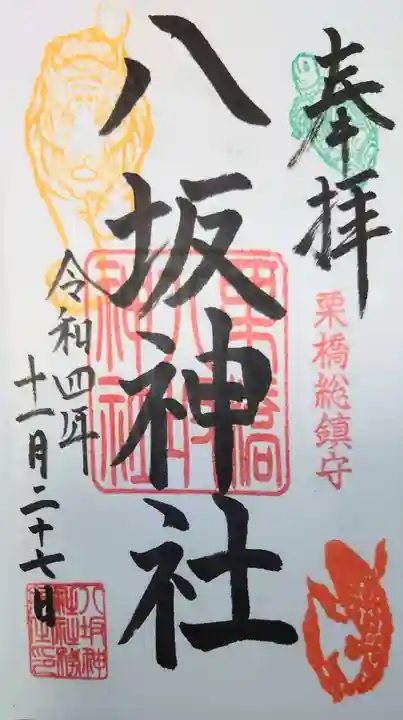 奉拝
栗橋総鎮守
八坂神社
栗橋
八坂
神社
令和四年
十一月二十七日